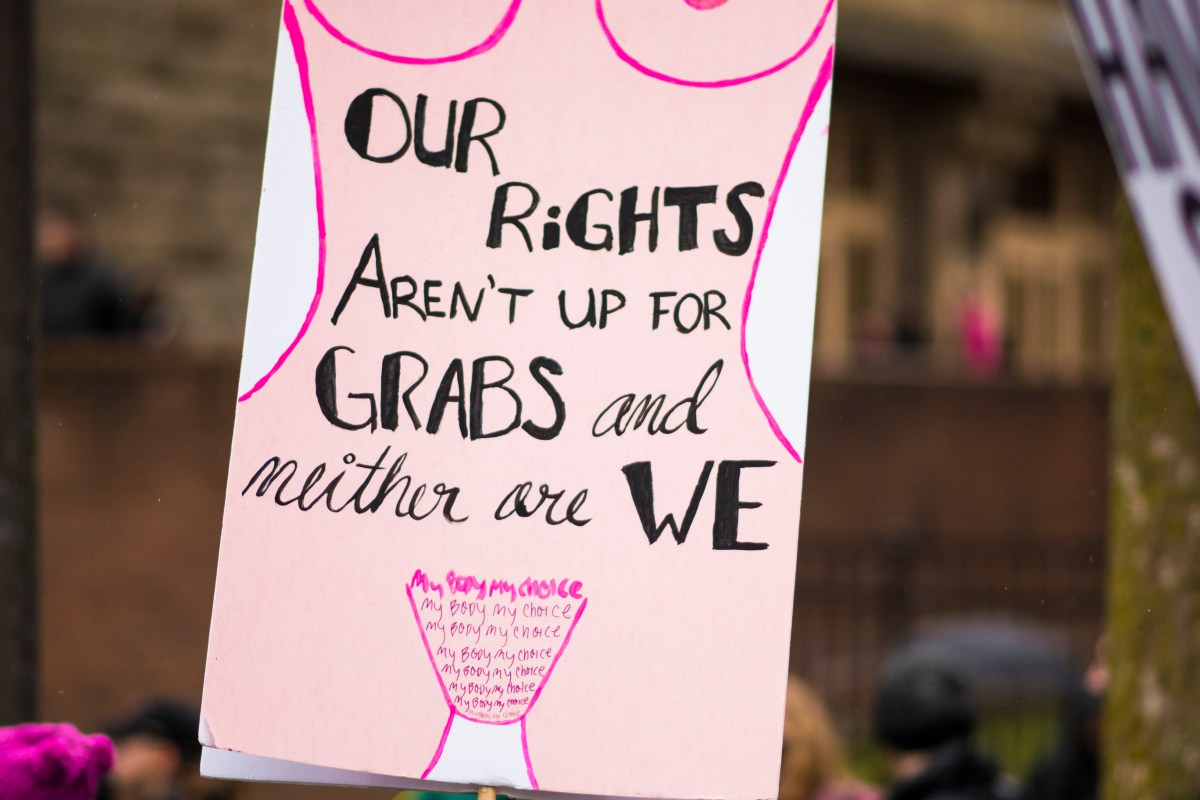 OUR
RiGHTS
AREN'T UP FOR
GRABS and
neither are WE
My BODY My CHOICE
My BODY My CHOICE
My BODY My CHOICE
My BODY My CHOICE
My BODY My CHOICE
My BODY My CHOICE
My BODY My CHOICE
My BODY My CHOICE